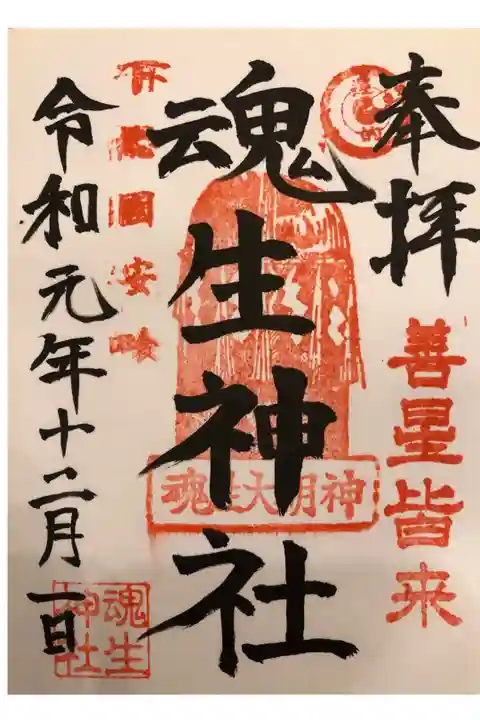 奉拝
善星皆来
魂生神社
神明大生魂
國安
令和元年十二月一日
魂生
神社